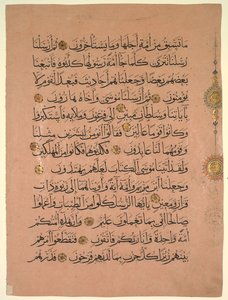 ما تسبق من أمة أجلها وما يستأخرون ثم أرسلنا
رسلنا تترا كلما جاء أمة رسولها كذبوه فأتبعنا
بعضهم بعضا وجعلناهم أحاديث فبعدا لقوم لا
يؤمنون ثم أرسلنا موسى وأخاه هارون
بآياتنا وسلطان مبين إلى فرعون وملئه فاستكبروا
وكانوا قوما عالين فقالوا أنؤمن لبشرين مثلنا
وقومهما لنا عابدون فكذبوهما فكانوا من المهلكين
ولقد آتينا موسى الكتاب لعلهم يهتدون
وجعلنا ابن مريم وأمه آية وآويناهما إلى ربوة ذات
قرار ومعين يا أيها الرسل كلوا من الطيبات واعملوا
صالحا إني بما تعملون عليم وإن هذه أمتكم
أمة واحدة وأنا ربكم فاتقون فتقطعوا أمرهم
بينهم زبرا كل حزب بما لديهم فرحون فذرهم